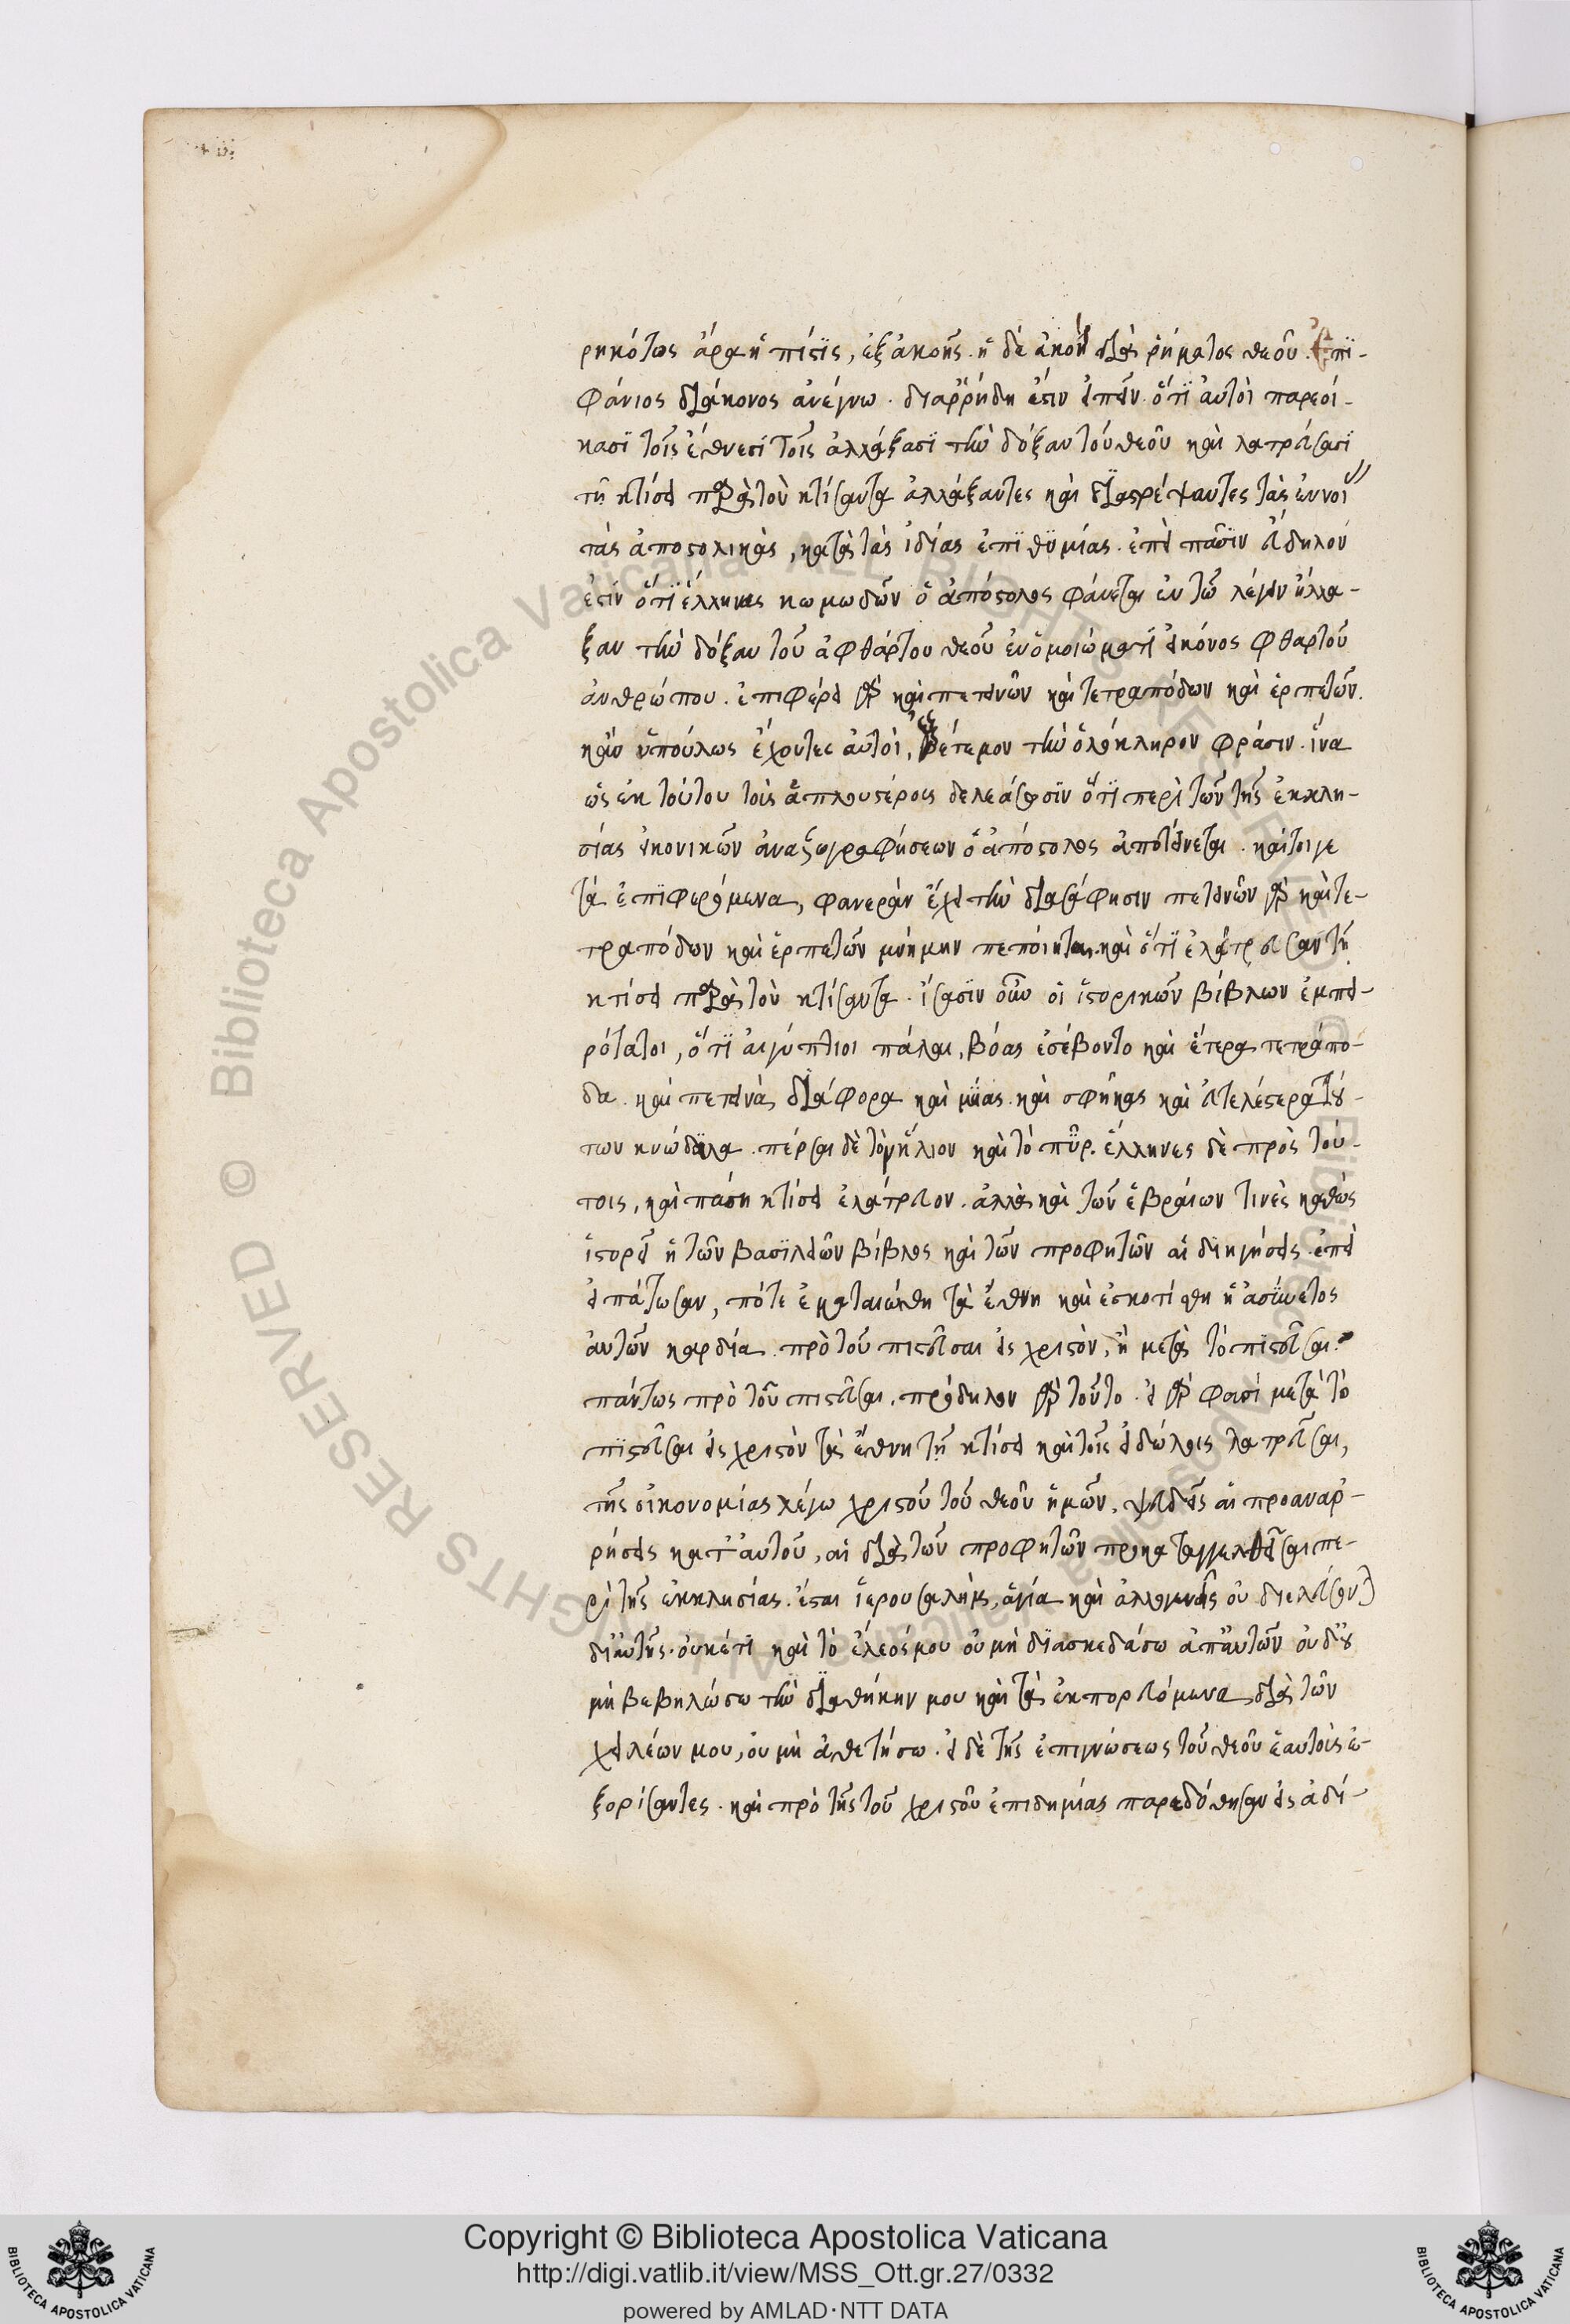 ρηκότος ἄρα ἡ πίστις, ἐξ ἀκοῆς. ἡ δὲ ἀκοὴ διὰ ῥήματος θεοῦ. Ἐπϊ-
φάνιος διάκονος ἀνέγνω. διαῤῥήδη ἐστιν εἰπεῖν. ὅτϊ αὐτοὶ παρεοί-
κασϊ τοῖς ἔθνεσϊ τοῖς ἀλλάξασϊ τὴν δόξαν τοῦ θεοῦ καὶ λατρεύσασϊ
τῇ κτίσει παρὰ τὸν κτίσαντα ἀλλάξαντες καὶ διαστρέψαντες τὰς ἐννοί
τὰς ἀποστολικὰς, κατὰ τὰς ἰδίας ἐπϊθϋμίας. ἐπεὶ πᾶσϊν εὔδηλόν
ἐστίν ὅτϊ ἕλληνας κωμωδῶν ὁ ἀπόστολος φαίνεται ἐν τῷ λέγειν ἤλλα-
ξαν τὴν δόξαν τοῦ ἀφθάρτου θεοῦ ἐν ὁμοιώματϊ εἰκόνος φθαρτοῦ
ἀνθρώπου. ἐπιφέρει γὰρ καὶ πετεινῶν καὶ τετραπόδων καὶ ἑρπετῶν.
κἂν ὑπούλως ἔχοντες αὐτοὶ, ἐξέτεμον τὴν ὁλόκληρον φράσιν. ἵνα
ὡς ἐκ τούτου τοὶς ἁπλουστέροις δελεάσωσϊν ὅτϊ περὶ τῶν τῆς ἐκκλη-
σίας εἰκονικῶν ἀναζωγραφήσεων ὁ ἀπόστολος ἀποτείνεται. καίτοιγε
τὰ ἐπϊφερόμενα, φανερὰν ἔχει τὴν διασάφησιν πετεινῶν γὰρ καὶ τε-
τραπόδων καὶ ἑρπετῶν μνήμην πεποίηται. καὶ ὅτϊ ἐλάτρευσαν τῇ
κτίσει παρὰ τὸν κτίσαντα. ἴσασϊν οὖν οἱ ἱστορικῶν βίβλων ἐμπει-
ρότατοι, ὅτϊ αἰγύπτιοι πάλαι, βόας ἐσέβοντο καὶ ἕτερα τετράπο-
δα. καὶ πετεινὰ διάφορα καὶ μυίας. καὶ σφῆκας καὶ εὐτελέστερα τού-
των κνώδαλα. πέρσαι δὲ τὸν ἥλιον καὶ τὸ πῦρ. ἕλληνες δὲ πρὸς τού-
τοις, καὶ πάση κτίσει ἐλάτρευον. ἀλλὰ καὶ τῶν ἑβραίων τινὲς καθὼς
ἱστορεῖ ἡ τῶν βασϊλειῶν βίβλος καὶ τῶν προφητῶν αἱ διηγήσεις. ἐπεὶ
εἰπάτωσαν, πότε ἐματαιώθη τὰ ἔθνη καὶ ἐσκοτίσθη ἡ ἀσύνετος
αὐτῶν καρδία. πρὸ τοῦ πιστεῦσαι εἰς χριστὸν, ἢ μετὰ τὸ πϊστεῦσαι.
πάντως πρὸ τοῦ πιστεῦσαι. πρόδηλον γὰρ τοῦτο. εἰ γὰρ φασὶ μετὰ τὸ
πϊστεῦσαι εἰς χριστὸν τὰ ἔθνη τῇ κτίσει καὶ τοῖς εἰδώλοις λατρεῦσαι,
τῆς οἰκονομίας λέγω χριστοῦ τοῦ θεοῦ ἡμῶν, ψευδεῖς αἱ προαναῤ-
ρήσεις κατ᾽ αὐτοῦ, αἱ διὰ τῶν προφητῶν προκαταγγελθεῖσαι πε-
ρὶ τῆς ἐκκλησίας. ἔσται ἱερουσαλὴμ, ἁγία καὶ ἀλλογενεῖς οὐ διελεύσον
δι᾽ αὐτῆς. οὐκέτϊ καὶ τὸ ἔλεός μου οὐ μὴ διασκεδάσω ἀπ᾽ αὐτῶν οὐδ᾽ οὐ
μὴ βεβηλώσω τὴν διαθήκην μου καὶ τὰ ἐκπορευόμενα διὰ τῶν
χειλέων μου, οὐ μὴ ἀθετήσω. εἰ δὲ τῆς ἐπιγνώσεως τοῦ θεοῦ ἑαυτοὺς ἐ-
ξορίσαντες. καὶ πρὸ τῆς τοῦ χριστοῦ ἐπιδημίας παρεδόθησαν εἰς ἀδό-
Copyright © Biblioteca Apostolica Vaticana
http://digi.vatlib.it/view/MSS_Ott.gr.27/0332
powered by AMLAD·NTT DATA